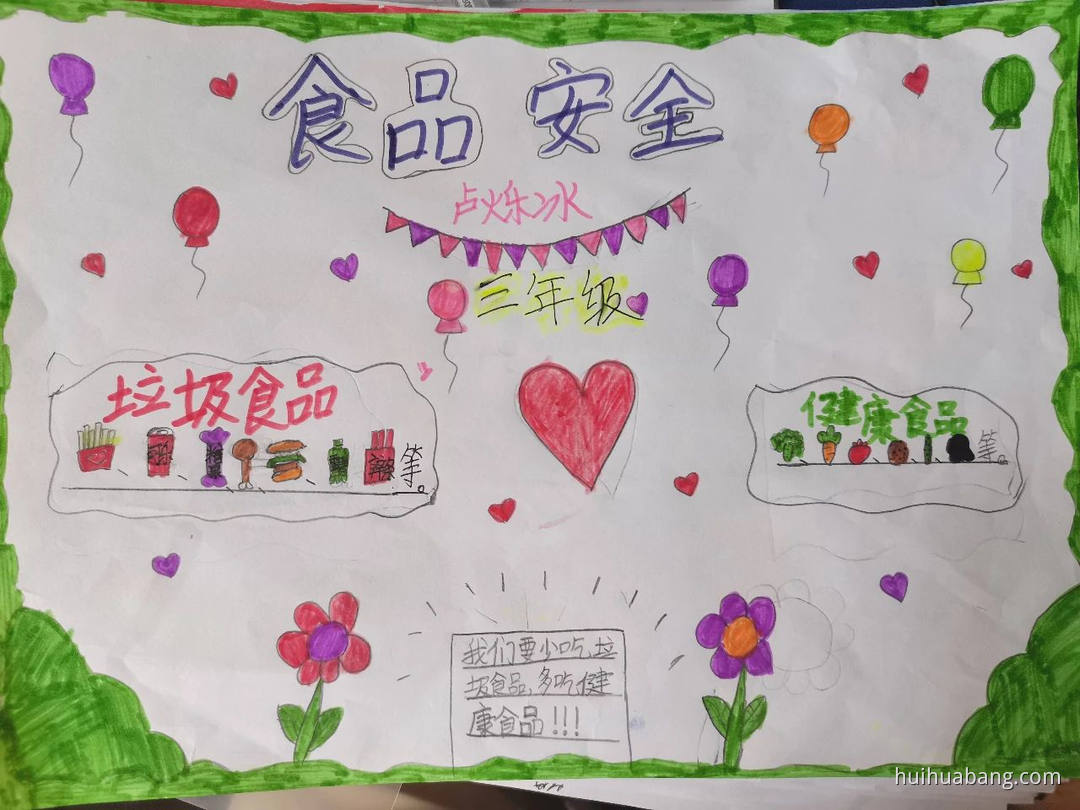 食品安全
卢烁冰
三年级
垃圾食品
等。
健康食品
等。
我们要少吃垃
圾食品,多吃健
康食品!!!
huihuabang.com